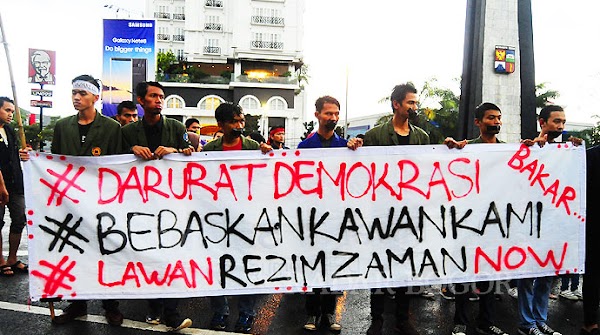 SAMSUNG
Galaxy Note8
Do bigger
things
KFC
#DARURAT DEMOKRASI
BAKAR...
#BEBASKANKAWANKAMI
#LAWAN REZIM ZAMAN NOW